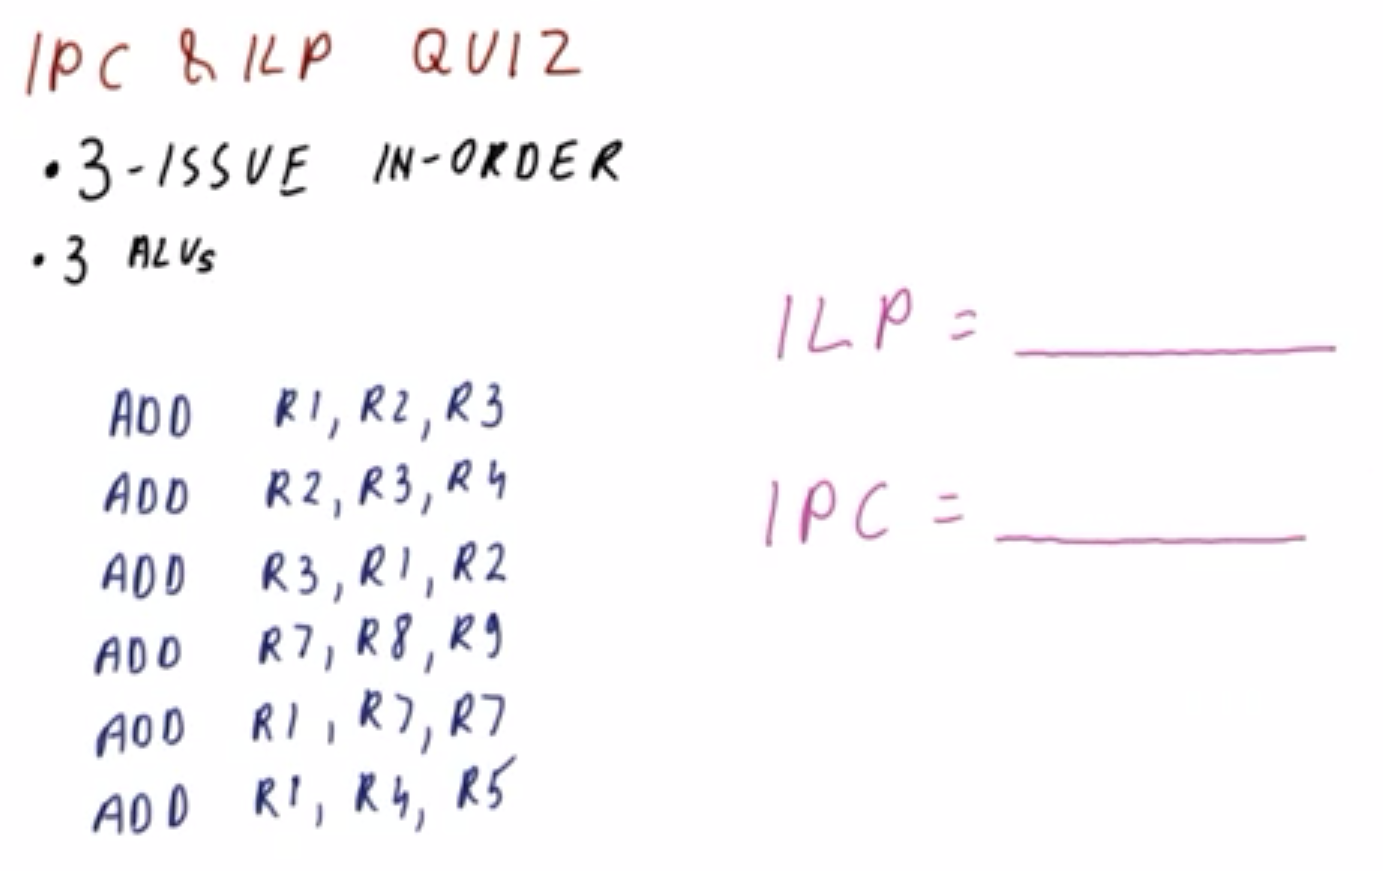 IPC & ILP QUIZ
• 3-ISSUE IN-ORDER
• 3 ALUs
ILP = ______
ADD R1, R2, R3
ADD R2, R3, R4
IPC = ______
ADD R3, R1, R2
ADD R7, R8, R9
ADD R1, R7, R7
ADD R1, R4, R5